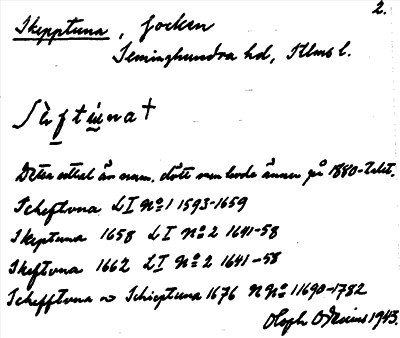 2.
Skepptuna, socken
Seminghundra hd, Sthms l.
Detta uttal är num. dött men levde ännu på 1880-talet.
Scheftvna LI No 1 1593-1659
Skeptuna 1658 LI No 2 1641-58
Skeftvna 1662 LI No 2 1641-58
Schefftvna ∾ Schieptuna 1676 N No 1 1690-1782
Oloph Odenius 1943.